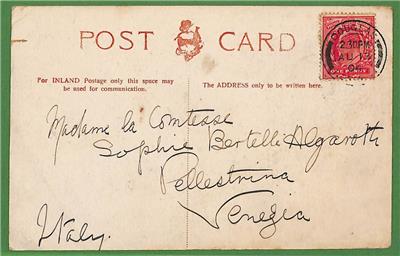 POST CARD
DOUGLAS
2.30PM
AU 13
04
ONE PENNY
For INLAND Postage only this space may
be used for communication.
The ADDRESS only to be written here.
Madame la Comtesse
Sophie Bertelli Algarotti
Pellestrina
Venezia
Italy.